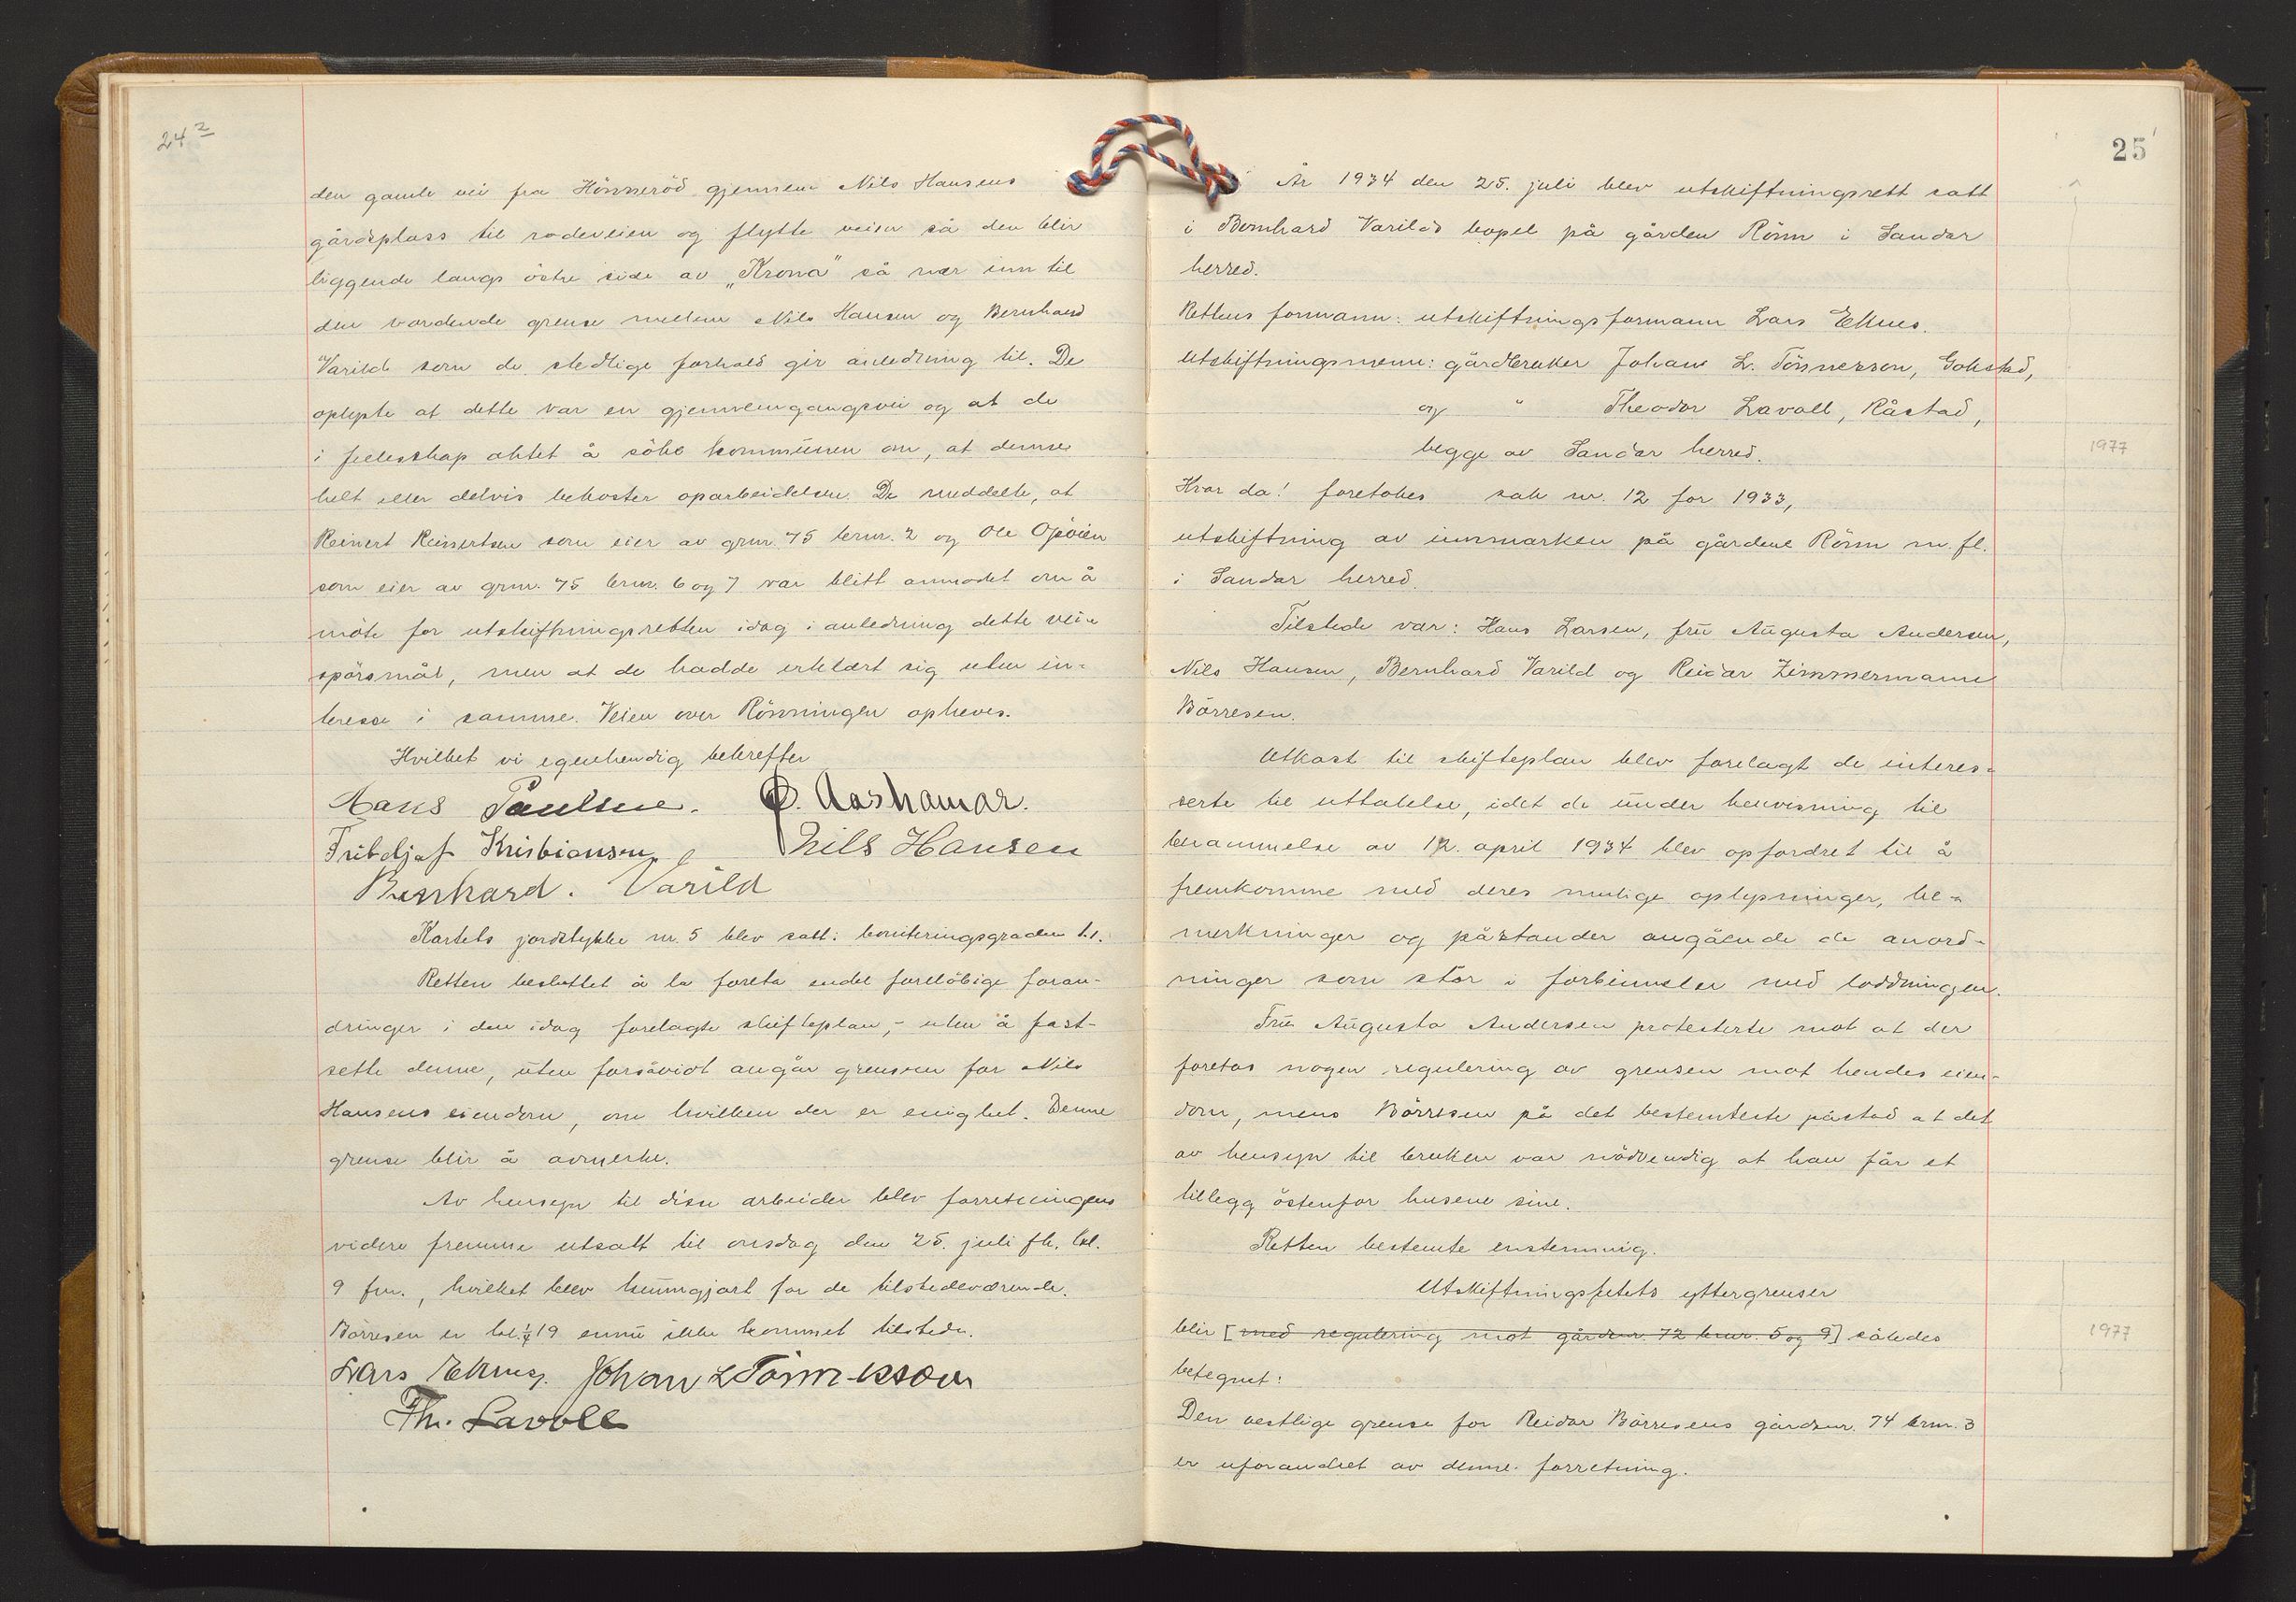 24²
den gamle vei fra Hönneröd gjennem Nils Hansens
gårdsplass til rodeveien og flytte veien så den blir
liggende langs östre side av „Krona" så nær inn til
den vordende grense mellem Nils Hansen og Bernhard
Varild som de stedlige forhold gir anledning til. De
oplyste at dette var en gjennemgangsvei og at de
i fellesskap aktet å söke kommunen om, at denne
helt eller delvis bekoster oparbeidelsen. De meddelte, at
Reinert Reinertsen som eier av grnr. 75 brnr. 2 og Ole Gjevien
som eier av grnr. 75 brnr. 6 og 7 var blitt anmodet om å
möte for utskiftningsretten idag i anledning dette vei-
spörsmål, men at de hadde erklært sig uten in-
teresse i samme. Veien over Rönningen opheves.
Hvilket vi egenhendig bekrefter
Hans Paulsen. O. Aashamar.
Fritdjof Kristiansen Nils Hansen
Bernhard. Varild
Kartets jordstykke nr. 5 blev satt i boniteringsgraden 1.1.
Retten besluttet å la foreta endel forelöbige foran-
dringer i den idag forelagte skifteplan, - uten å fast-
sette denne, uten forsåvidt angår grensen for Nils
Hansens eiendom, om hvilken der er enighet. Denne
grense blir å avmerke.
Av hensyn til disse arbeider blev forretningens
videre fremme utsatt til onsdag den 25. juli fk. kl.
9 fm., hvilket blev kunngjort for de tilstedeværende.
Börresen er kl. ¼19 ennu ikke kommet tilstede.
Lars Eknes. Johan L Tönnesson
Th. Lavoll
25
År 1934 den 25. juli blev utskiftningsrett satt
i Bernhard Varilds bopel på gården Rönn i Sandar
herred.
Rettens formann: utskiftningsformann Lars Eknes.
Utskiftningsmenn: gårdbruker Johan L. Tönnesson, Gokstad,
og " Theodor Lavoll, Råstad,
begge av Sandar herred.
1977
Hvor da! foretokes sak nr. 12 for 1933,
utskiftning av innmarken på gårdene Rönn m. fl.
i Sandar herred.
Tilstede var: Hans Larsen, fru Augusta Andersen,
Nils Hansen, Bernhard Varild og Reidar Zimmermann
Börresen.
Utkast til skifteplan blev forelagt de interes-
serte til uttalelse, idet de under henvisning til
berammelse av 12. april 1934 blev opfordret til å
fremkomme med deres mulige oplysninger, be-
merkninger og påstander angående de anord-
ninger som står i forbinnelse med loddningen.
Fru Augusta Andersen protesterte mot at der
foretas nogen regulering av grensen mot hendes eien-
dom, mens Börresen på det bestemteste påstod at det
av hensyn til bruken var nödvendig at han får et
tillegg östenfor husene sine.
Retten bestemte enstemmig.
Utskiftningsfeltets yttergrenser
blir [med regulering mot gårdsnr. 72 brnr. 5 og 9] således
1977
betegnet:
Den vestlige grense for Reidar Börresens gårdsnr. 74 brnr. 3
er uforandret av denne forretning.